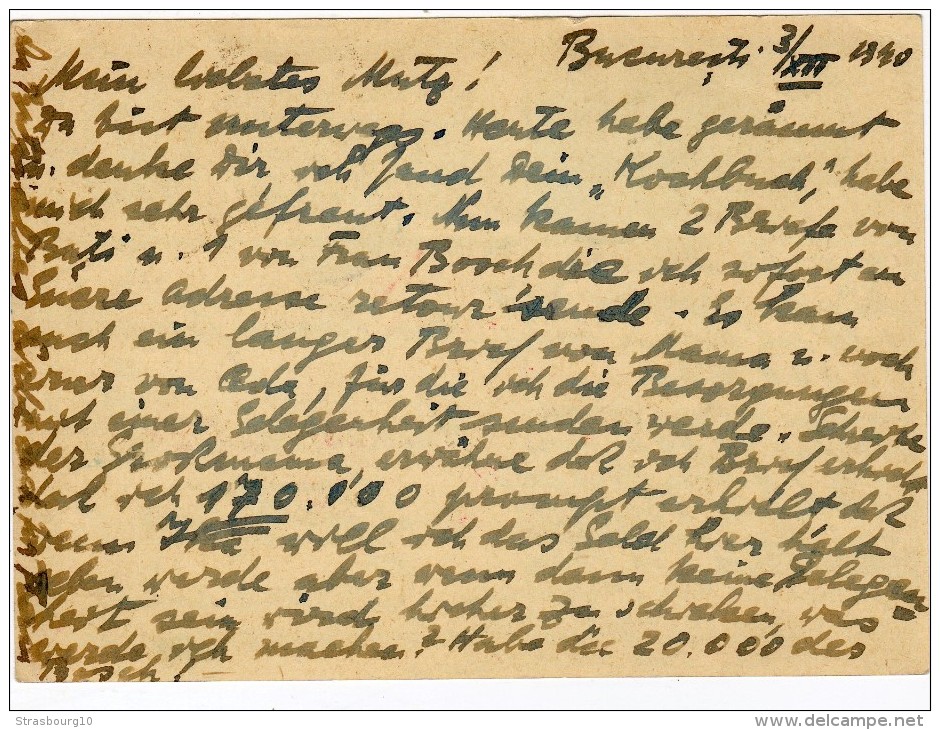 București 3/XII 1940
Mein liebstes Mutz!
Du bist unterwegs. Heute habe geräumt
u. denke Dir ich fand Dein „Kochbuch", habe
mich sehr gefreut. Nun kamen 2 Briefe von
Buți u. 1 von Frau Bosch die ich sofort an
Euere adresse retour sende. Es kam
auch ein langer Brief von Mama u. noch
einer von Oda, für die ich die Besorgungen
mit einer Gelegenheit senden werde. Schreibe
der Großmama, erwähne daß ich Brief erhielt
daß ich 170.000 prompt erhielt daß
wenn Ika will ich das Geld hier
geben werde aber wenn dann keine Gelegen=
heit sein wird hierher zu schreiben, was
werde ich machen? Habe die 20.000 des
Bosch.
Strasbourg10
delcampe.net